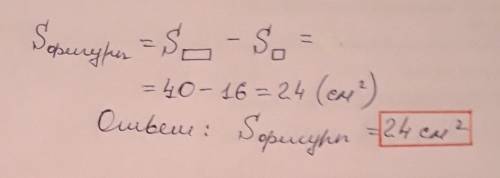 Sфигуры = S▭ − S□ =
= 40 − 16 = 24 (см²)
Ответ: Sфигуры = 24 см²